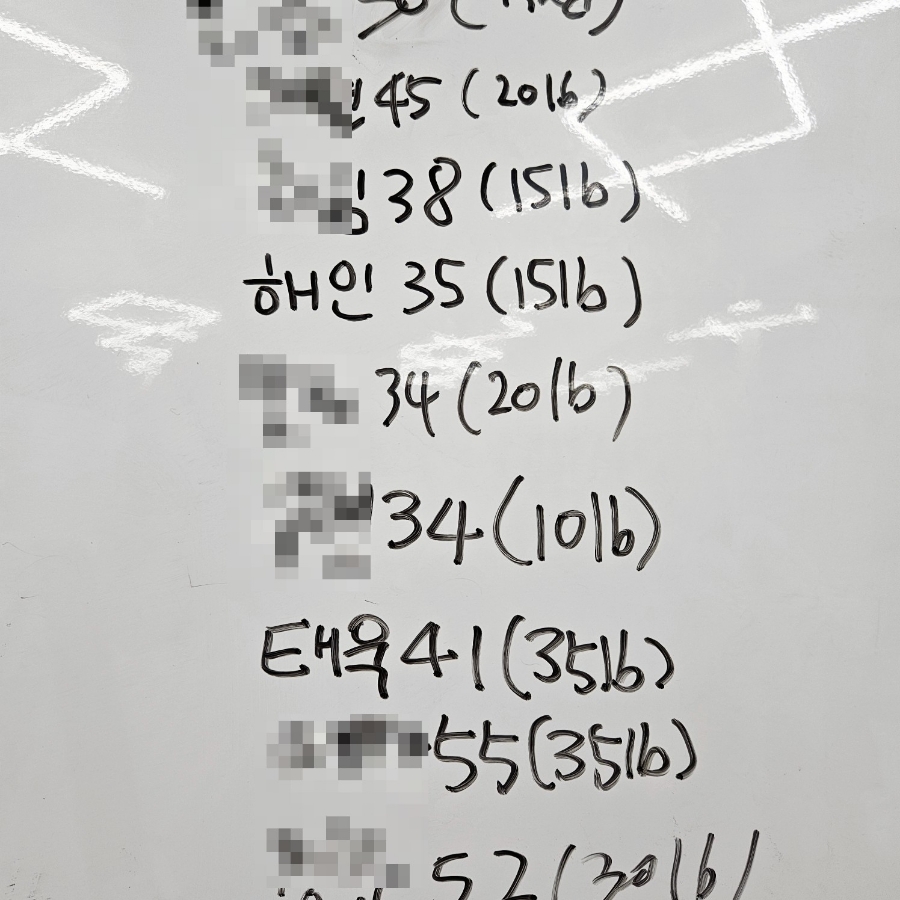 45 (20lb)
38 (15lb)
해인 35 (15lb)
34 (20lb)
34 (10lb)
태욱 41 (35lb)
55 (35lb)
52 (30lb)